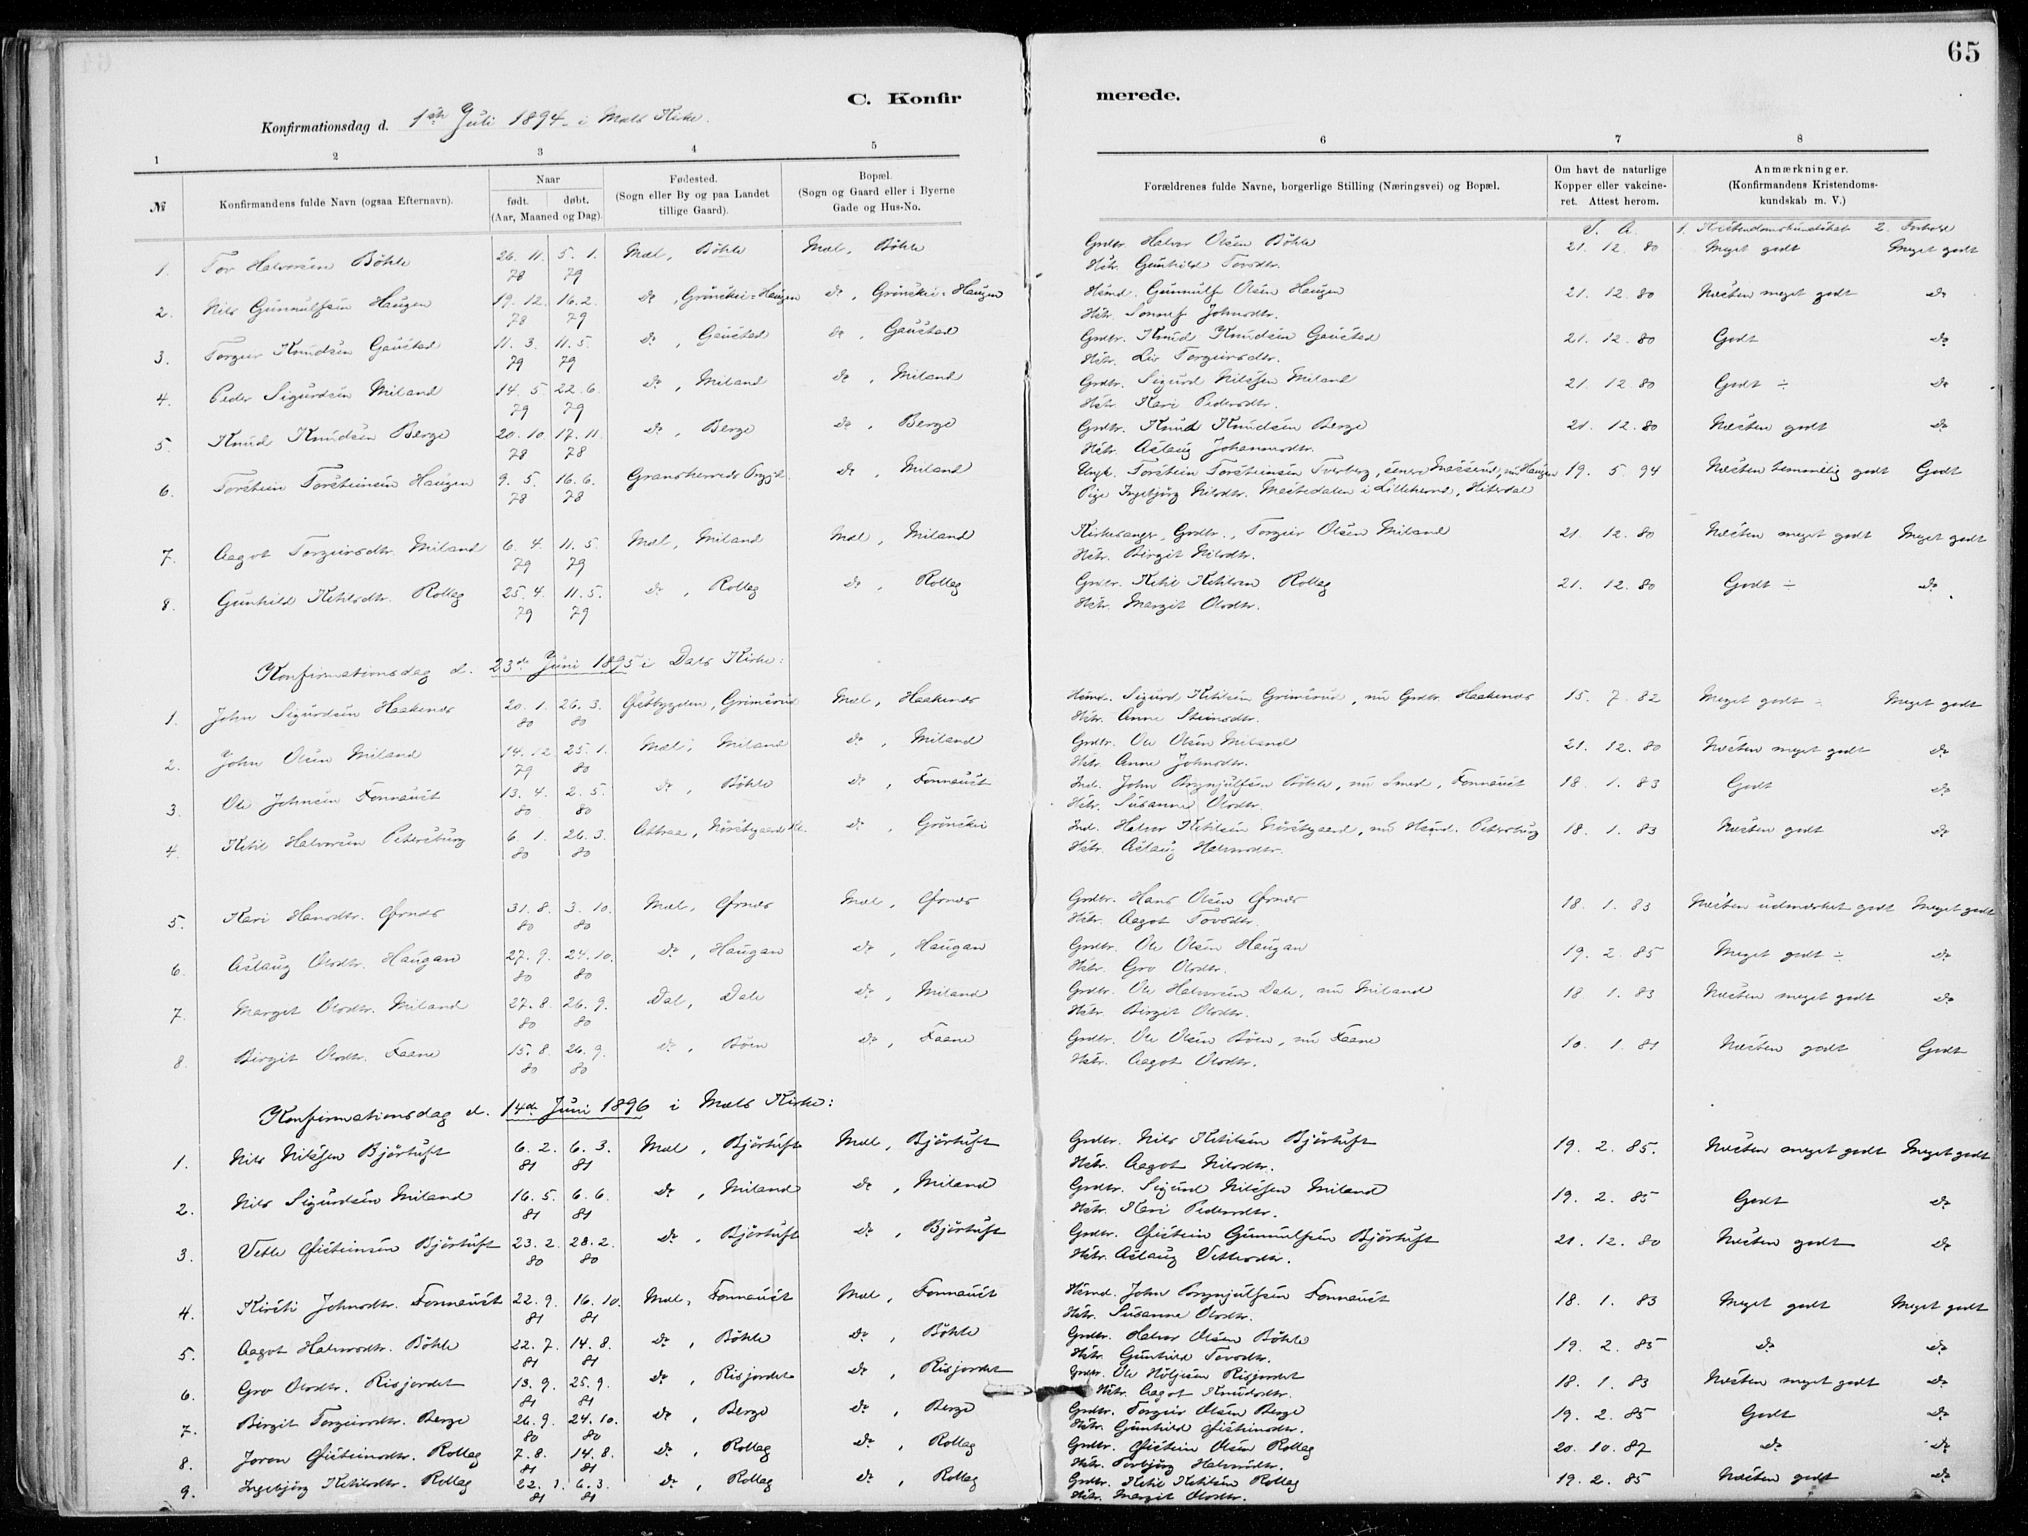 65
C. Konfir merede.
Konfirmationsdag d. 1ste Juli 1894 i Mæls Kirke.
1 2 3 4 5 6 7 8
№ Konfirmandens fulde Navn (ogsaa Efternavn). Naar født. døbt. (Aar, Maaned og Dag). Fødested. (Sogn eller By og paa Landet tillige Gaard). Bopæl. (Sogn og Gaard eller i Byerne Gade og Hus-No. Forældrenes fulde Navne, borgerlige Stilling (Næringsvei) og Bopæl. Om havt de naturlige Kopper eller vakcineret. Attest herom. Anmærkninger. (Konfirmandens Kristendomskundskab m. V.)
1. Kristendomskundskab 2. Forhold
1. Tov Halvorsen Böhle 26. 11. 78 5. 1. 79 Mæl, Böhle Mæl, Böhle Grdbr. Halvor Olsen Böhle 21. 12. 80 Meget godt Meget godt
Hstr. Gunhild Tovsdtr.
2. Nils Gunnulfsen Haugen 19. 12. 78 16. 2. 79 do, Grönskei-Haugen do, Grönskei-Haugen Hsmd. Gunnulf Olsen Haugen 21. 12. 80 Næsten meget godt do
Hstr. Sonnef Johnsdtr.
3. Torgeir Knudsen Gaustad 11. 3. 79 11. 5. 79 do, Gaustad do, Gaustad Grdbr. Knud Knudsen Gausted 21. 12. 80 Godt do
Hstr. Liv Torgeirsdtr.
4. Peder Sigurdsen Miland 14. 5 79 22. 6. 79 do, Miland do, Miland Grdbr. Sigurd Nilssen Miland 21. 12 80 Godt ÷ do
Hstr. Kari Pedersdtr.
5. Knud Knudsen Berge 20. 10. 78 17. 11. 78 do, Berge do, Berge Grdbr. Knud Knudsen Berge 21. 12. 80 Næsten godt do
Hstr. Aslaug Johannesdtr.
6. Torstein Torsteinsen Haugen 9. 5. 78 16. 6. 78 Gransherreds Prgjd. do, Miland Ungk. Torstein Torsteinsen Tverberg, senere Massrud, nu Haugen 19. 5. 94 Næsten temmelig godt Godt
Pige Ingebjörg Nilsdtr. Mæstedalen i Lilleherred, Hiterdal
7. Aagot Torgeirsdtr. Miland 6. 4. 79 11. 5. 79 Mæl, Miland Mæl, Miland Kirkesanger, Grdbr., Torgeir Olsen Miland 21. 12. 80 Næsten meget godt Meget godt
Hstr. Birgit Nilsdtr.
8. Gunhild Ketilsdtr. Rollag 25. 4. 79 11. 5. 79 do, Rollag do, Rollag Grdbr. Ketil Ketilsen Rollag 21. 12. 80 Godt ÷ do
Hstr. Margit Olsdtr.
Konfirmationsdag d. 23de Juni 1895 i Dals Kirke:
1. John Sigurdsen Haakenæs 20. 1. 80 26. 3. 80 Østbygden, Grimsrud Mæl, Haakenæs Hsmd. Sigurd Ketilsen Grimsrud, nu Grdbr. Haakenæs 15. 7. 82 Meget godt ÷ Meget godt
Hstr. Anne Steinsdtr.
2. John Olsen Miland 14. 12 79 25. 1. 80 Mæl, Miland do, Miland Grdbr. Ole Olsen Miland 21. 12. 80 Næsten meget godt do
Hstr. Anne Johnsdtr.
3. Ole Johnsen Fonnaust 13. 4. 80 2. 5. 80 do, Böhle do, Fonnaust Ind. John Brynjulfsen Böhle, nu Smed, Fonnaust 18. 1. 83 Godt do
Hstr. Susanne Olsdtr.
4. Ketil Halvorsen Petersburg 6. 1. 80 26. 3. 80 Attraa, Nörstgaard do, Grönskei Ind. Halvor Ketilsen Nörstgaard, nu Hsmd. Petersburg 18. 1. 83 Næsten godt do
Hstr. Aslaug Halvorsdtr.
5. Kari Hansdtr. Ørnæs 31. 8. 80 3. 10. 80 Mæl, Ørnæs Mæl, Ørnæs Grdbr. Hans Olsen Ørnæs 18. 1. 83 Næsten udmærket godt Meget godt
Hstr. Aagot Tovsdtr.
6. Aslaug Olsdtr. Haugan 27. 9. 80 24. 10. 80 do, Haugan do, Haugan Grdbr. Ole Olsen Haugan 19. 2. 85 Meget godt ÷ do
Hstr. Gro Olsdtr.
7. Margit Olsdtr. Miland 27. 8. 80 26. 9. 80 Dal, Dale do, Miland Grdbr. Ole Halvorsen Dale, nu Miland 18 1. 83 Næsten meget godt do
Hstr. Birgit Olsdtr.
8. Birgit Olsdtr. Faane 15. 8. 80 26. 9. 80 do, Böen do, Faane Grdbr. Ole Olsen Böen, nu Faane 10. 1. 81 Næsten godt Godt
Hstr. Aagot Olsdtr.
Konfirmationsdag d. 14de Juni 1896 i Mæls Kirke:
1. Nils Nilssen Björtuft 6. 2. 81 6. 3. 81 Mæl, Björtuft Mæl, Björtuft Grdbr. Nils Ketilsen Björtuft 19. 2. 85. Næsten meget godt Meget godt
Hstr. Aagot Nilsdtr.
2. Nils Sigurdsen Miland 16. 5. 81 6. 6. 81 do, Miland do, Miland Grdbr. Sigurd Nilssen Miland 19. 2. 85 Godt do
Hstr. Kari Pedersdtr.
3. Vetle Øisteinsen Björtuft 23. 2. 80 28. 2. 80 do, Björtuft do, Björtuft Grdbr. Øistein Gunnulfsen Björtuft 21. 12. 80 Næsten godt do
Hstr. Aslaug Vetlesdtr.
4. Kirsti Johnsdtr. Fonnaust 22. 9. 81 16. 10. 81 Mæl, Fonnaust Mæl, Fonnaust Hsmd. John Brynjulfsen Fonnaust 18. 1. 83 Meget godt Meget godt
Hstr. Susanne Olsdtr.
5. Aagot Halvorsdtr. Böhle 22. 7. 81 14. 8. 81 do, Böhle do, Böhle Grdbr. Halvor Olsen Böhle 19. 2. 85 do do
Hstr. Gunhild Tovsdtr.
6. Gro Olsdtr. Risjordet 13. 9. 81 25. 9. 81 do, Risjordet do, Risjordet Grdbr. Ole Höljesen Risjordet 18. 1. 83 Næsten meget godt do
Hstr. Aagot Knudsdtr.
7. Birgit Torgeirsdtr. Berge 26. 9. 80 24. 10. 80 do, Berge do, Berge Grdbr. Torgeir Olsen Berge 19. 2. 85 Godt do
Hstr. Gunhild Øisteinsdtr.
8. Joren Øisteinsdtr. Rollag 7. 8. 81 14. 8. 81 do, Rollag do, Rollag Grdbr. Øistein Olsen Rollag 20. 10. 87 do do
Hstr. Torbjörg Halvorsdtr.
9. Ingebjörg Ketilsdtr. Rollag 22. 1. 81 6. 3. 81 do, Rollag do, Rollag Grdbr. Ketil Ketilsen Rollag 19. 2. 85 Næsten godt do
Hstr. Margit Olsdtr.